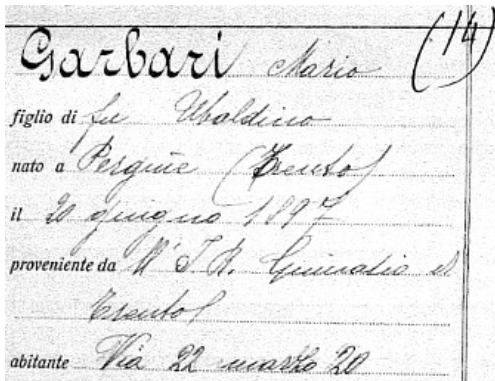 (14)
Garbari Mario
figlio di fu Ubaldino
nato a Pergine (Trento)
il 20 giugno 1897
proveniente da I. R. Ginnasio di
Trento
abitante Via 22 marzo 20